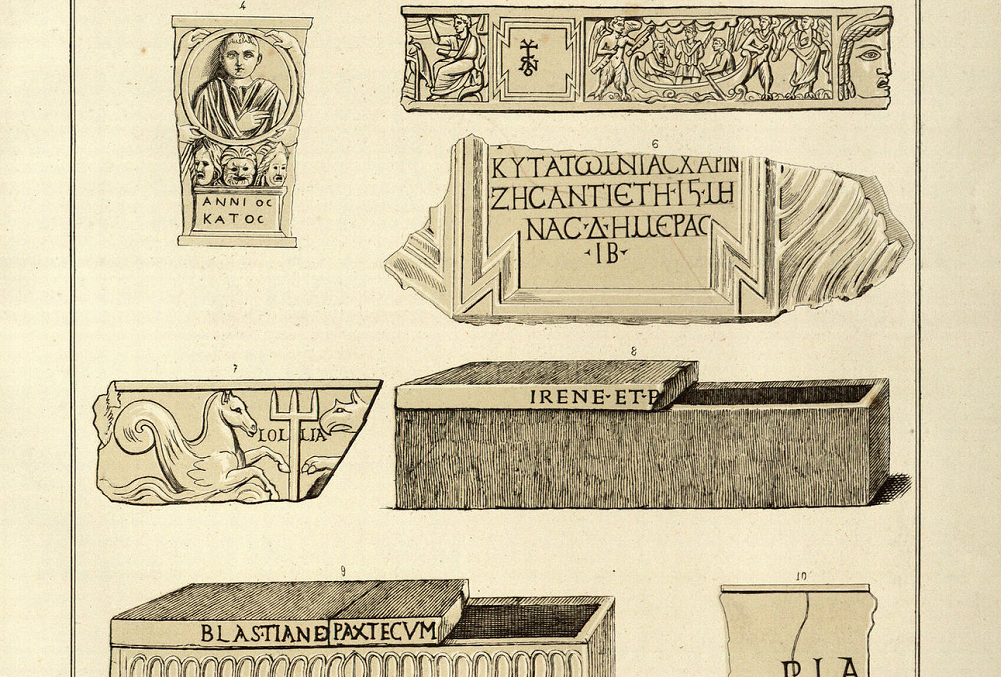 4
ANNI OC
KATOC
6
ΚΥΤΑΤωΝΙΑCΧΑΡΙΝ
ΖΗCΑΝΤΙΕΤΗ·ΙϚ·ΜΗ
ΝΑC·Δ·ΗΜΕΡΑC
·ΙΒ·
7
LOL LIA
8
IRENE·ET·P
9
BLASTIANE PAXTECVM
10
PLA